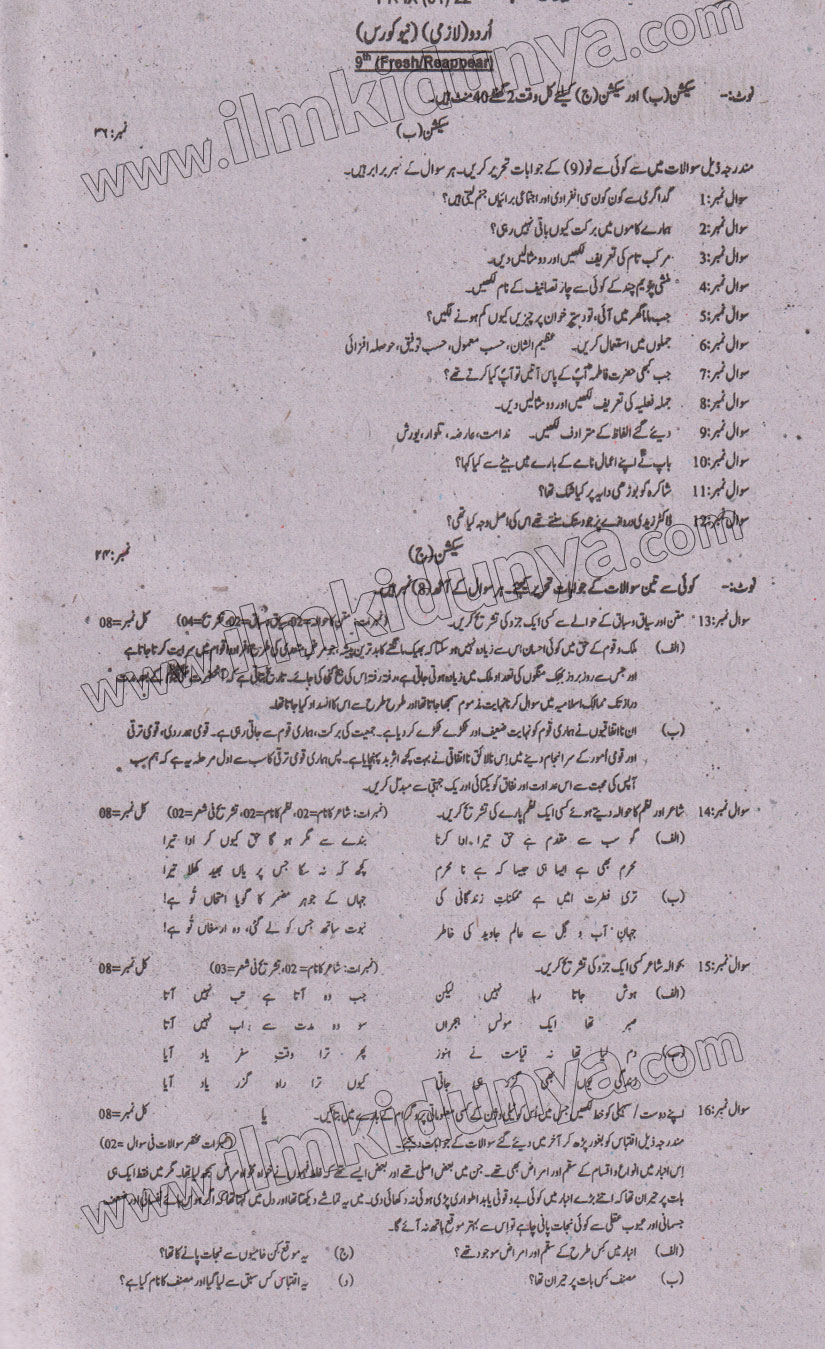 اُردو (لازمی) (نیو کورس)
9th (Fresh/Reappear)
نوٹ:- سیکشن (ب) اور سیکشن (ج) کیلئے کل وقت 2 گھنٹے 40 منٹ ہیں۔
سیکشن (ب) نمبر: ۳۶
مندرجہ ذیل سوالات میں سے کوئی سے نو (9) کے جوابات تحریر کریں۔ ہر سوال کے نمبر برابر ہیں۔
سوال نمبر:1 گداگری سے کون کون سی انفرادی اور اجتماعی برائیاں جنم لیتی ہیں؟
سوال نمبر:2 ہمارے کاموں میں برکت کیوں باقی نہیں رہی؟
سوال نمبر:3 مرکب تام کی تعریف لکھیں اور دو مثالیں دیں۔
سوال نمبر:4 منشی پریم چند کے کوئی سے چار تصانیف کے نام لکھیں۔
سوال نمبر:5 جب ماما گھر میں آئی، تو دستر خوان پر چیزیں کیوں کم ہونے لگیں؟
سوال نمبر:6 جملوں میں استعمال کریں۔ عظیم الشان، حسب معمول، حسب توفیق، حوصلہ افزائی
سوال نمبر:7 جب کبھی حضرت فاطمہؓ آپؐ کے پاس آتیں تو آپؐ کیا کرتے تھے؟
سوال نمبر:8 جملہ فعلیہ کی تعریف لکھیں اور دو مثالیں دیں۔
سوال نمبر:9 دیئے گئے الفاظ کے مترادف لکھیں۔ ندامت، عارضہ، تلوار، یورش
سوال نمبر:10 باپ نے اپنے اعمال نامے کے بارے میں بیٹے سے کیا کہا؟
سوال نمبر:11 شاکرہ کو بوڑھی دایہ پر کیا شک تھا؟
سوال نمبر:12 ڈاکٹر زیدی دروازے پر جو دستک سنتے تھے اس کی اصل وجہ کیا تھی؟
سیکشن (ج) نمبر: ۲۴
نوٹ:- کوئی سے تین سوالات کے جوابات تحریر کیجئے۔ ہر سوال کے آٹھ (8) نمبر ہیں۔
سوال نمبر:13 متن اور سیاق و سباق کے حوالے سے کسی ایک جزو کی تشریح کریں۔ (نمبرات: متن کا حوالہ=02، سیاق و سباق=02، تشریح=04) کل نمبر=08
(الف) ملک و قوم کے حق میں کوئی احسان اس سے زیادہ نہیں ہو سکتا کہ بھیک مانگنے کا بدترین پیشہ، جو مرض متعدی کی طرح افراد اقوام میں سرایت کرتا جاتا ہے
اور جس سے روز بروز بھیک منگوں کی تعداد ملک میں زیادہ ہوتی جاتی ہے، رفتہ رفتہ اس کی بیخ کنی کی جائے۔ تاریخ بتاتی ہے کہ آنحضرتؐ کے بعد مدت
دراز تک ممالک اسلامیہ میں سوال کرنا نہایت مذموم سمجھا جاتا تھا اور طرح طرح سے اس کا انسداد کیا جاتا تھا۔
(ب) ان نااتفاقیوں نے ہماری قوم کو نہایت ضعیف اور ٹکڑے ٹکڑے کر دیا ہے۔ جمعیت کی برکت، ہماری قوم سے جاتی رہی ہے۔ قومی ہمدردی، قومی ترقی
اور قومی اُمور کے سرانجام دینے میں اِس نالائق نااتفاقی نے بہت کچھ اثر بد پہنچایا ہے۔ پس ہماری قومی ترقی کا سب سے اول مرحلہ یہ ہے کہ ہم سب
آپس کی محبت سے اس عداوت اور نفاق کو یکتائی اور یک جہتی سے مبدّل کریں۔
سوال نمبر:14 شاعر اور نظم کا حوالہ دیتے ہوئے کسی ایک نظم پارے کی تشریح کریں۔ (نمبرات: شاعر کا نام=02، نظم کا نام=02، تشریح فی شعر=02) کل نمبر=08
(الف) گو سب سے مقدم ہے حق تیرا ادا کرنا بندے سے مگر ہو گا حق کیوں کر ادا تیرا
محرم بھی ہے ایسا ہی جیسا کہ ہے نا محرم کچھ کہ نہ سکا جس پر یاں بھید کھلا تیرا
(ب) تری فطرت امیں ہے ممکناتِ زندگانی کی جہاں کے جوہر مضمر کا گویا امتحاں تُو ہے!
جہانِ آب و گِل سے عالم جاوید کی خاطر نبوت ساتھ جس کو لے گئی، وہ ارمغاں تُو ہے!
سوال نمبر:15 بحوالہ شاعر کسی ایک جزو کی تشریح کریں۔ (نمبرات: شاعر کا نام=02، تشریح فی شعر=03) کل نمبر=08
(الف) ہوش جاتا رہا نہیں لیکن جب وہ آتا ہے تب نہیں آتا
صبر تھا ایک مونسِ ہجراں سو وہ مدت سے اب نہیں آتا
(ب) دم لیا تھا نہ قیامت نے ہنوز پھر ترا وقتِ سفر یاد آیا
زندگی یوں بھی گزر ہی جاتی کیوں ترا راہ گزر یاد آیا
سوال نمبر:16 اپنے دوست / سہیلی کو خط لکھیں جس میں اس کو ٹیلی وژن کے کسی معلوماتی پروگرام کے بارے میں بتائیں۔ یا کل نمبر=08
مندرجہ ذیل اقتباس کو بغور پڑھ کر آخر میں دیئے گئے سوالات کے جوابات دیجئے۔ (نمبرات مختصر سوالات فی سوال=02)
اِس انبار میں انواع و اقسام کے سقم اور امراض بھی تھے۔ جن میں بعض اصلی تھے اور بعض ایسے تھے کہ غلط فہموں نے خواہ مخواہ مرض سمجھ لیا تھا۔ مگر میں فقط ایک ہی
بات پر حیران تھا کہ اتنے بڑے انبار میں کوئی بے وقوفی یا بد اطواری پڑی ہوئی نہ دکھائی دی۔ میں یہ تماشے دیکھتا تھا اور دل میں کہتا تھا کہ اگر ہوس ہائے نفسانی اور ضعف
جسمانی اور عیوب عقلی سے کوئی نجات پانی چاہے تو اِس سے بہتر موقع ہاتھ نہ آئے گا۔
(الف) انبار میں کس طرح کے سقم اور امراض موجود تھے؟ (ج) یہ موقع کن خامیوں سے نجات پانے کا تھا؟
(ب) مصنف کس بات پر حیران تھا؟ (د) یہ اقتباس کس سبق سے لیا گیا اور مصنف کا نام کیا ہے؟
www.ilmkidunya.com
www.ilmkidunya.com
www.ilmkidunya.com